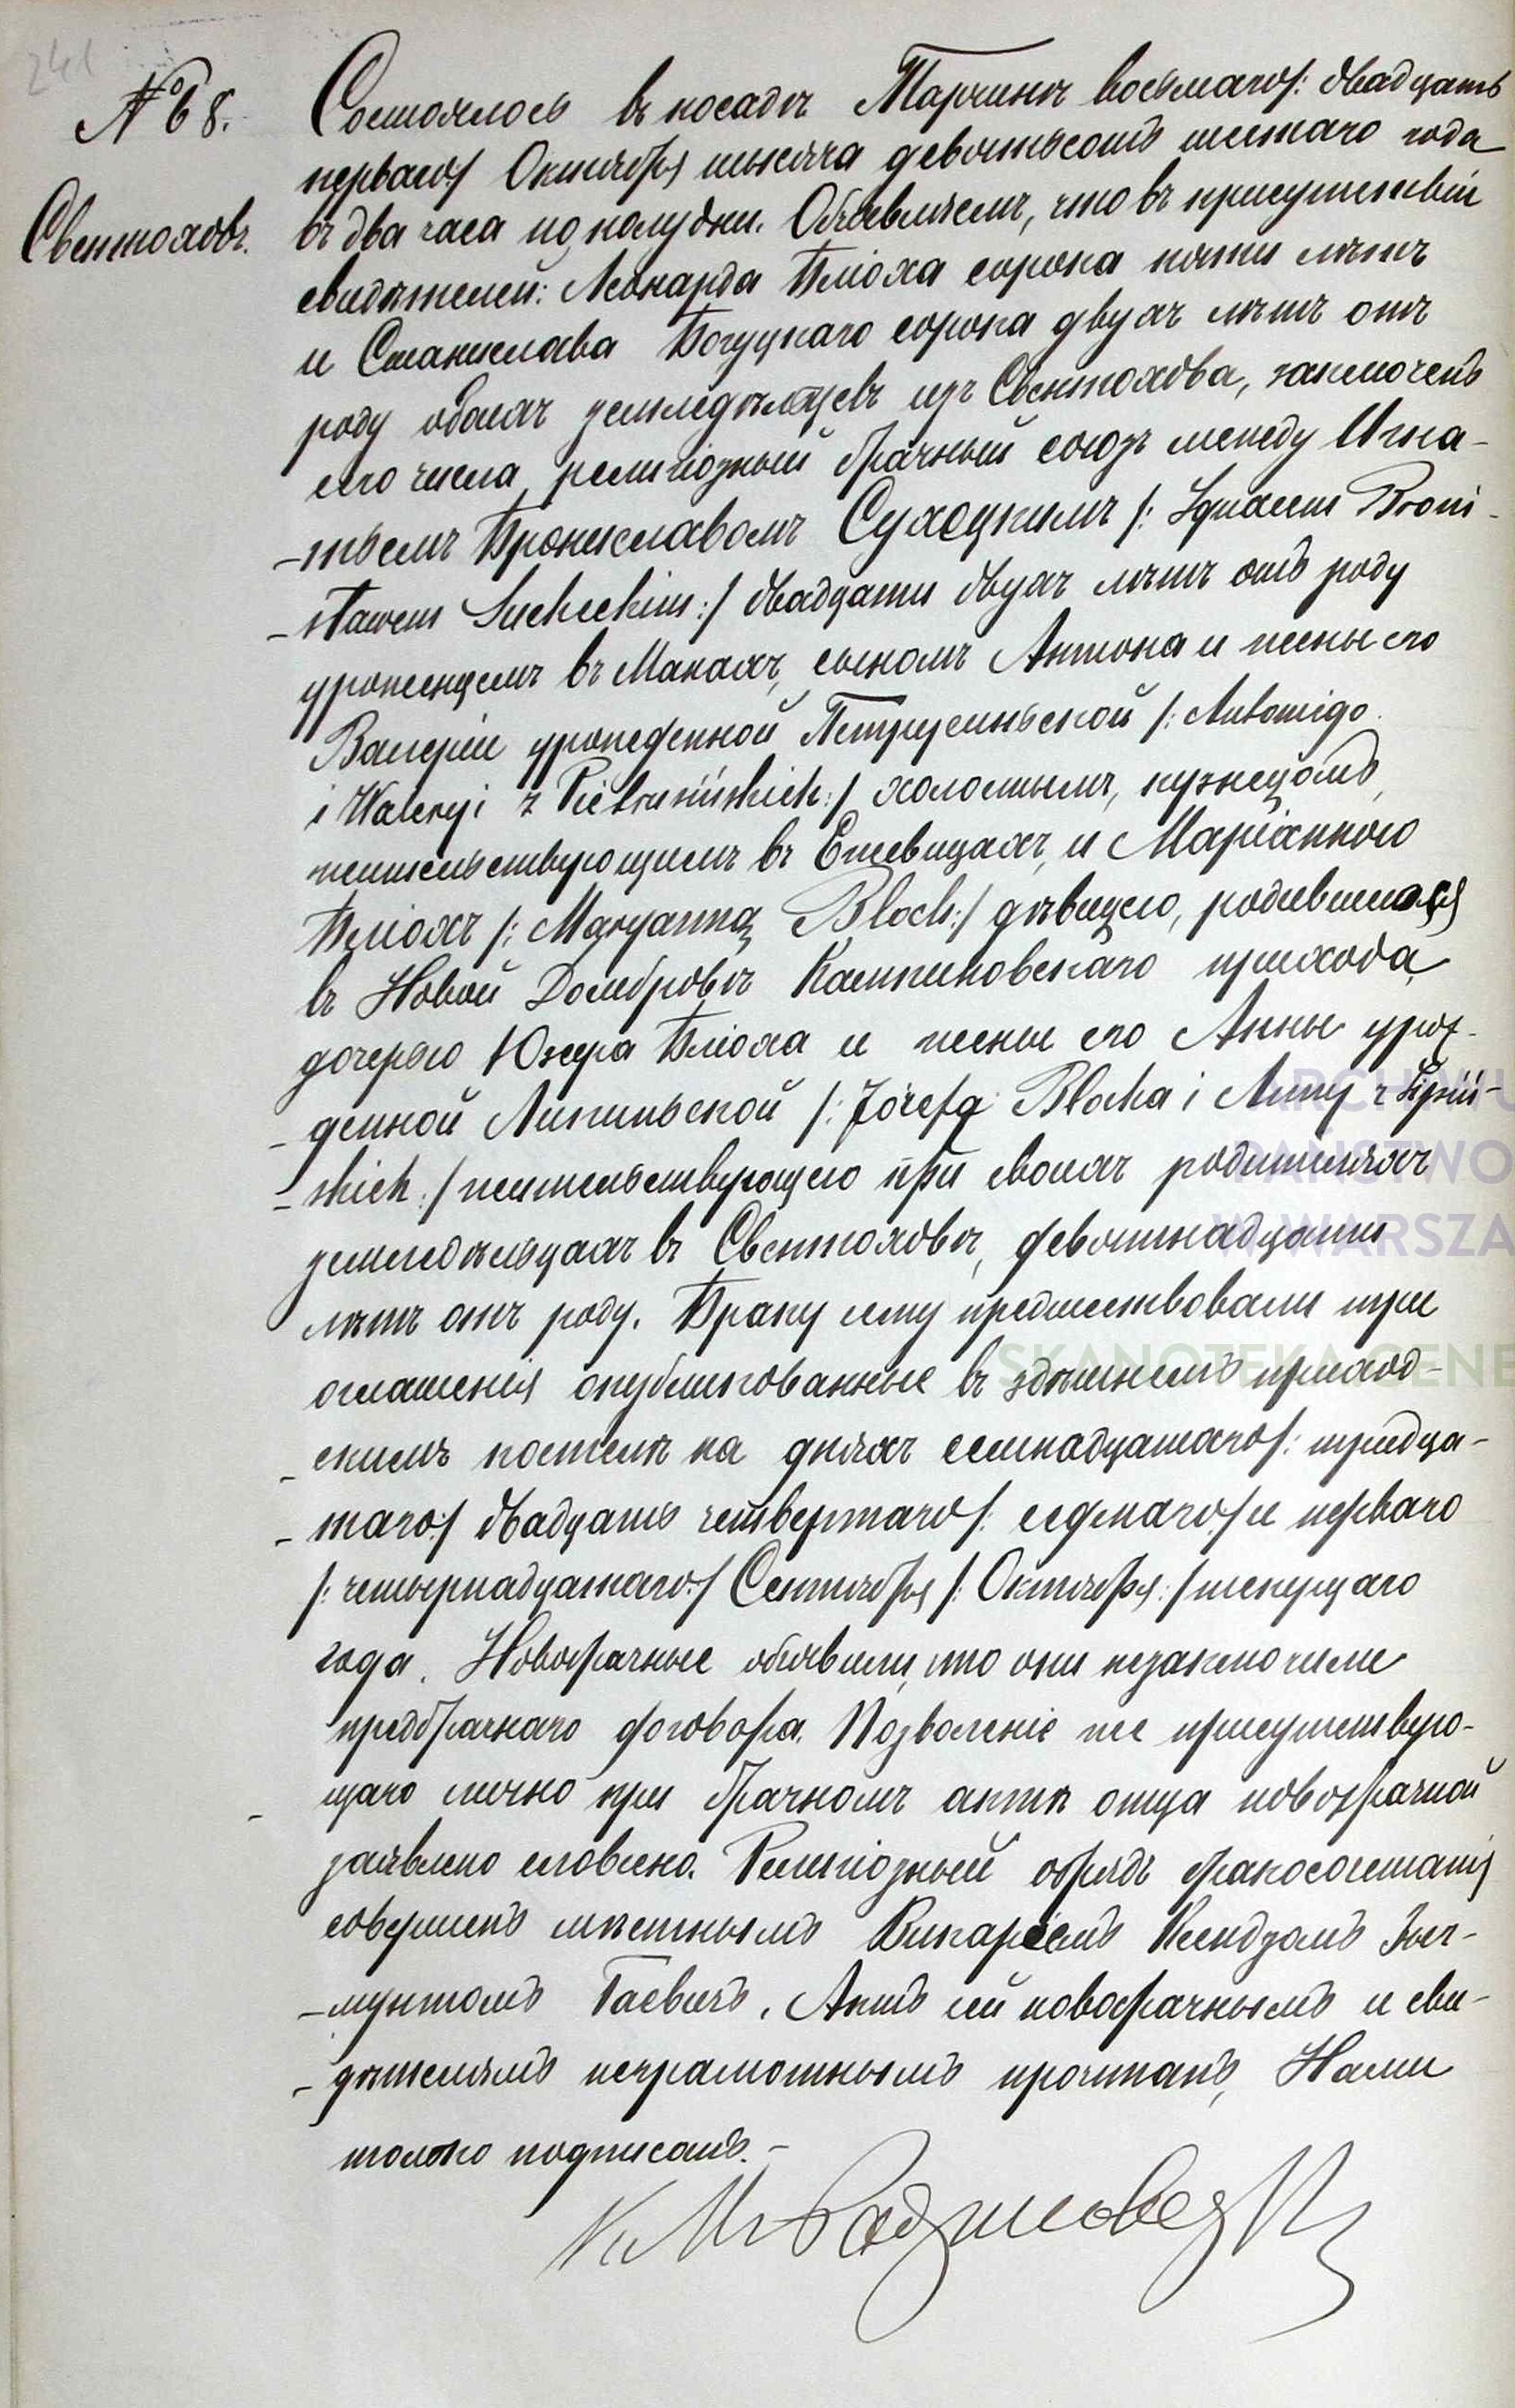 241
№ 68.
Свентоховъ.
Состоялось въ посадѣ Тарчинѣ восьмаго /: двадцать
перваго :/ Октября тысяча девятьсотъ шестаго года
въ два часа по полудни. Объявляемъ, что въ присутствіи
свидѣтелей: Леонарда Блоха сорока пяти лѣтъ
и Станислава Богуцкаго сорока двухъ лѣтъ отъ
роду обоихъ земледѣльцевъ изъ Свентохова, заключенъ
сего числа религіозный брачный союзъ между Игна-
-тьемъ Брониславомъ Сухецкимъ /: Ignacem Broni-
-sławem Sucheckim :/ двадцати двухъ лѣтъ отъ роду
уроженцемъ въ Манахъ, сыномъ Антона и жены его
Валеріи урожденной Петрусиньской /: Antoniego
i Waleryi z Pietrusińskich :/ холостымъ, кузнецомъ,
жительствующимъ въ Ежевицахъ, и Маріанною
Бліохъ /: Maryanną Bloch :/ дѣвицею, родившеюся
въ Новой Домбровѣ Кампиновскаго прихода,
дочерью Юзефа Бліоха и жены его Анны урож-
-денной Липиньской /: Józefa Blocha i Anny z Lipiń-
-skich :/ жительствующею при своихъ родителяхъ
земледѣльцахъ въ Свентоховѣ, девятнадцати
лѣтъ отъ роду. Браку сему предшествовали три
оглашенія опубликованные въ здѣшнемъ приход-
-скимъ костелѣ на дняхъ семнадцатаго /: тридца-
-таго :/ двадцать четвертаго /: седмаго :/ и перваго
/: четырнадцатаго :/ Сентября /: Октября :/ текущаго
года. Новобрачные объявили, что они незаключили
предбрачнаго договора. Позволеніе же присутствую-
щаго лично при брачномъ актѣ отца новобрачной
заявлено словесно. Религіозный обрядъ бракосочетанія
совершенъ мѣстнымъ Викаріемъ Ксендзомъ Зыг-
-мунтомъ Гаевичъ. Актъ сей новобрачнымъ и сви-
-дѣтелямъ неграмотнымъ прочитанъ, Нами
только подписанъ. -
ARCHIWU
PAŃSTWO
W WARSZA
SKANOTEKA GENE